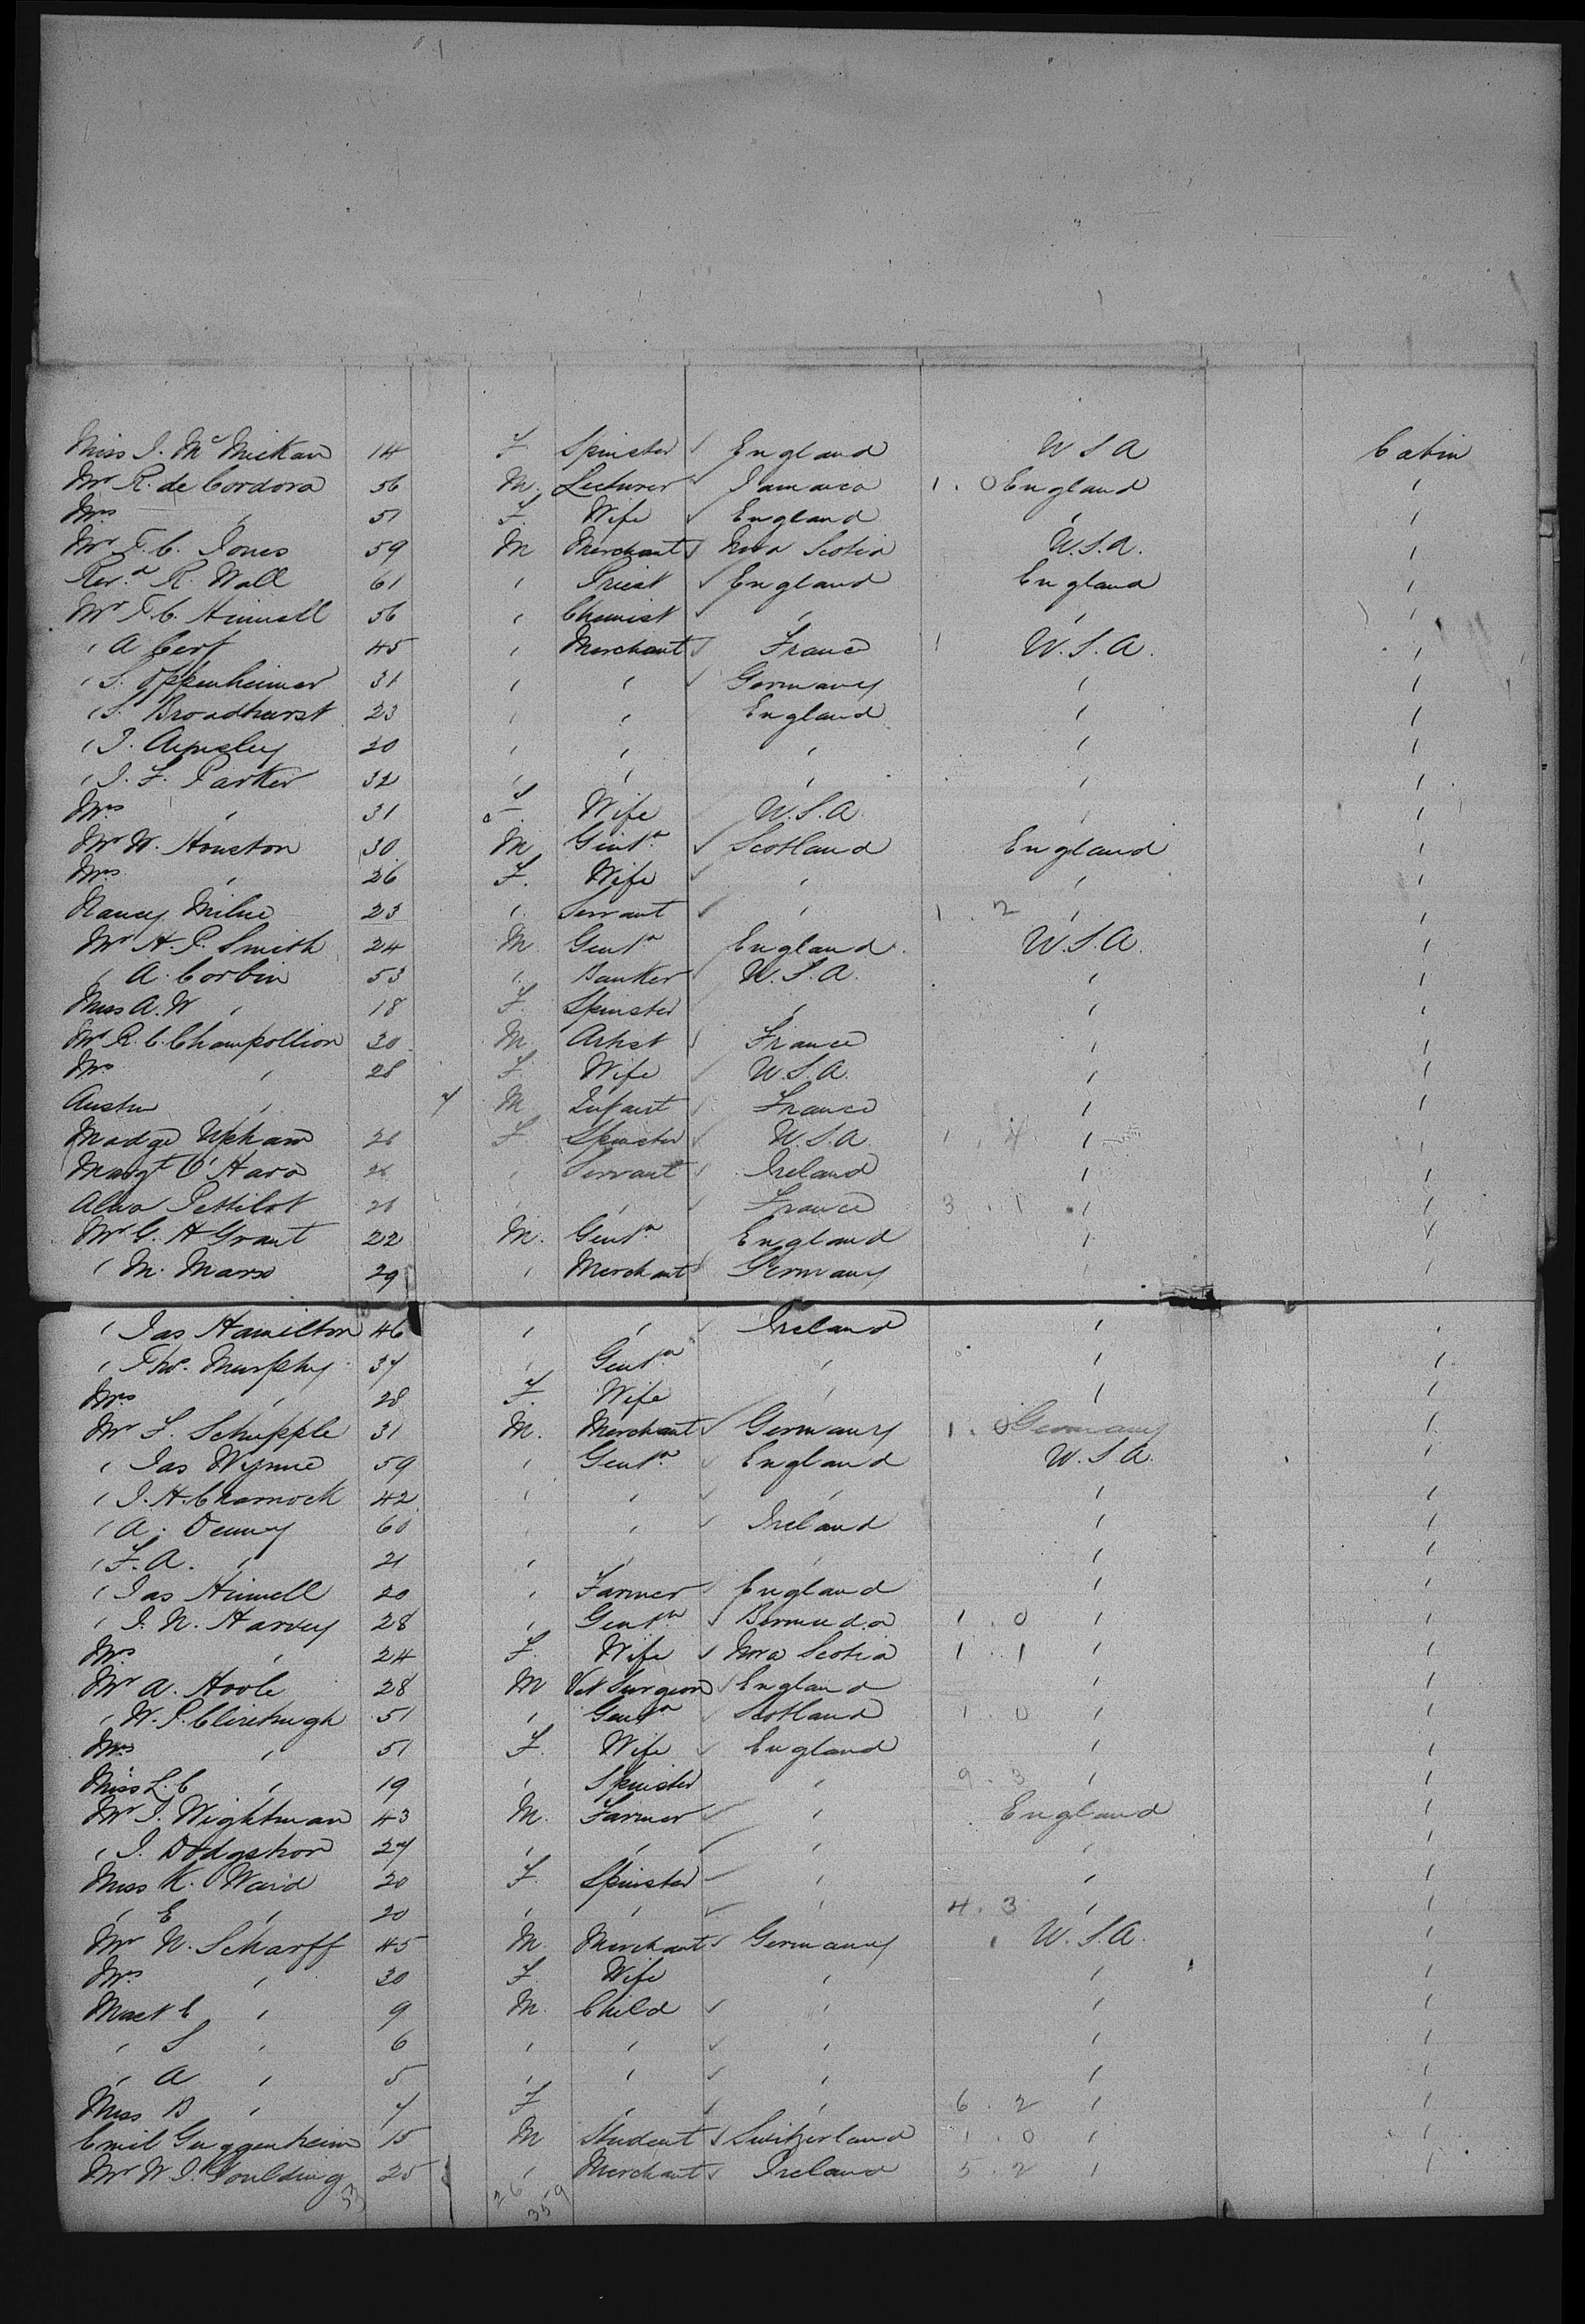 Miss J. McMickan 14 F Spinster England U S A Cabin
Mr R. de Cordova 56 M. Lecturer Jamaica 1 . 0 England "
Mrs " 51 F. Wife England " "
Mr T. C. Jones 59 M Merchant Nova Scotia U.S.A. "
Revd R. Wall 61 " Priest England England "
Mr T. C. Hinnell 56 " Chemist " " "
" A Cerf 45 " Merchant France 1 U.S.A. "
" S. Oppenheimer 31 " " Germany " "
" S. Broadhurst 23 " " England " "
" J. Aynsley 20 " " " " "
" J. F. Parker 32 " " " " "
Mrs " 31 F. Wife U.S.A. " "
Mr W. Houston 30 M Gentn Scotland England "
Mrs " 26 F. Wife " " "
Nancy Milne 23 " Servant " 1 . 2 " "
Mr H. P. Smith 24 M Gentn England U.S.A. "
" A. Corbin 53 " Banker U.S.A. " "
Miss A. W " 18 F. Spinster " " "
Mr R. C. Champollion 30 M. Artist France " "
Mrs " 28 F. Wife U.S.A. " "
Austin " 7 M Infant France " "
Madge Upham 26 F Spinster U.S.A. 1 . 4 " "
Margt O'Hara 26 " Servant Ireland " "
Alina Pettilot 26 " " France 3 . 1 " "
Mr G. H Grant 22 M. Gentn England " "
" M. Marx 29 " Merchant Germany " "
" Jas Hamilton 46 " " Ireland " "
" Thos. Murphy 37 " Gentn " " "
Mrs " 28 F. Wife " " "
Mr F. Schupple 31 M. Merchant Germany 1 . 0 Germany "
" Jas Wynne 59 " Gentn England U.S.A. "
" J. H. Charnock 42 " " " " "
" A. Denny 60 " " Ireland " "
" F. A. " 21 " " " " "
" Jas Hinnell 20 " Farmer England " "
" J. N. Harvey 28 " Gentn Bermuda 1 . 0 " "
Mrs " 24 F. Wife Nova Scotia 1 . 1 " "
Mr A. Hoole 28 M Vet Surgeon England " "
" W. P. Clirehugh 51 " Gentn Scotland 1 . 0 " "
Mrs " 51 F. Wife England " "
Miss L. C " 19 " Spinster " 9 . 3 " "
Mr J. Wightman 43 M. Farmer " England "
" J. Dodgshon 27 " " " " "
Miss K. Ward 20 F. Spinster " " "
" E " 20 " " " 4 . 3 " "
Mr N. Scharff 45 M. Merchant Germany U.S.A. "
Mrs " 30 F. Wife " " "
Mast E " 9 M. Child " " "
" S " 6 " " " " "
" A " 5 " " " " "
Miss B " 7 F " " 6 . 2 " "
Emil Guggenheim 15 M Student Switzerland 1 . 0 " "
Mr W. J. Goulding 25 " Merchant Ireland 5 . 2 " "
53 26 359